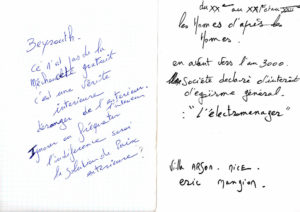 Beyrouth.
Ce n'est pas de la
méchanceté gratuite
c'est une vérité
intérieure
déranger de l'extérieur.
Ignorer ou fréquenter
l'indifférence serai
la solution de Paix
extérieure ?
du XXème au XXIème
les Homes d'après les
Homes.
en avant vers l'an 3000.
Société declaré d'interet
d'egoisme général.
: "l'électromenager"
Villa ARSON. NICE.
eric Mangion.